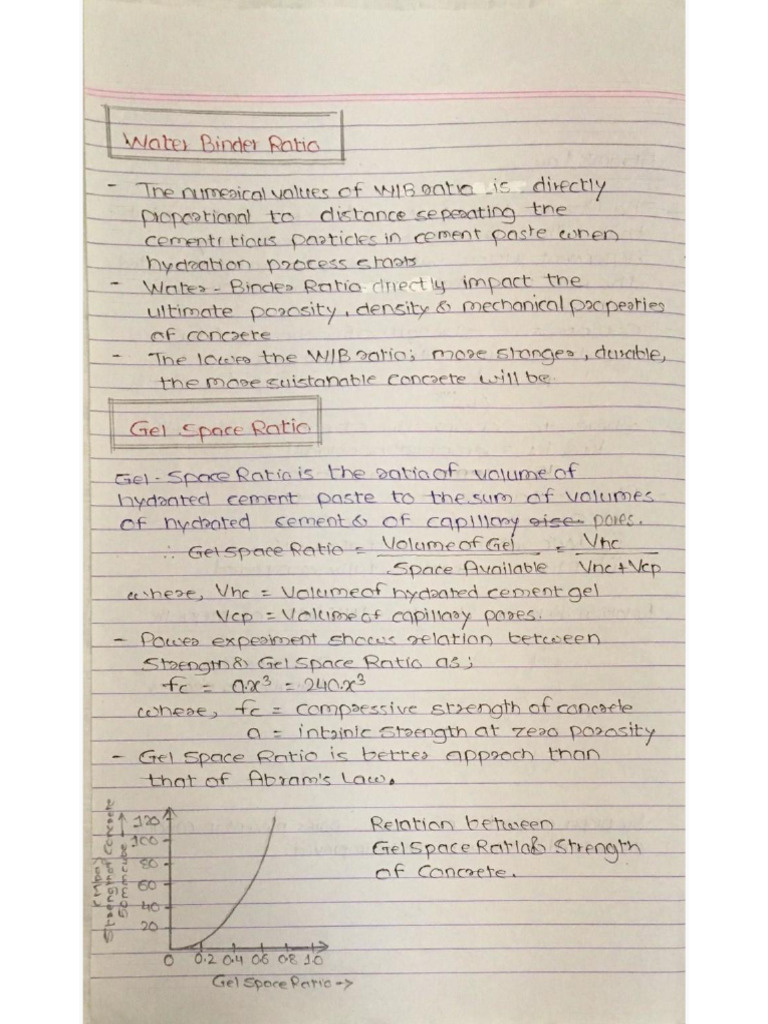 Water Binder Ratio
- The numerical values of W/B ratio is directly
proportional to distance seperating the
cementitious particles in cement paste when
hydration process starts
- Water - Binder Ratio directly impact the
ultimate porosity, density & mechanical properties
of concrete
- The lower the W/B ratio; more stonger, durable,
the more suistanable concrete will be.
Gel Space Ratio
Gel - Space Ratio is the ratio of volume of
hydrated cement paste to the sum of volumes
of hydrated cement & of capillary pores.
∴ Gel space Ratio = Volume of Gel / Space Available = Vhc / Vhc + Vcp
where, Vhc = Volume of hydrated cement gel
Vcp = Volume of capillary pores.
- Power experiment shows relation between
Strength & Gel Space Ratio as;
fc = ax³ = 240x³
where, fc = compressive strength of concrete
a = intrinic strength at zero porosity
- Gel Space Ratio is better approch than
that of Abram's Law.
Relation between
Gel Space Ratio & Strength
of Concrete.
(Mpa)
Strength of Concrete
50mm cube →
120
100
80
60
40
20
0 0.2 0.4 0.6 0.8 1.0
Gel Space Ratio →